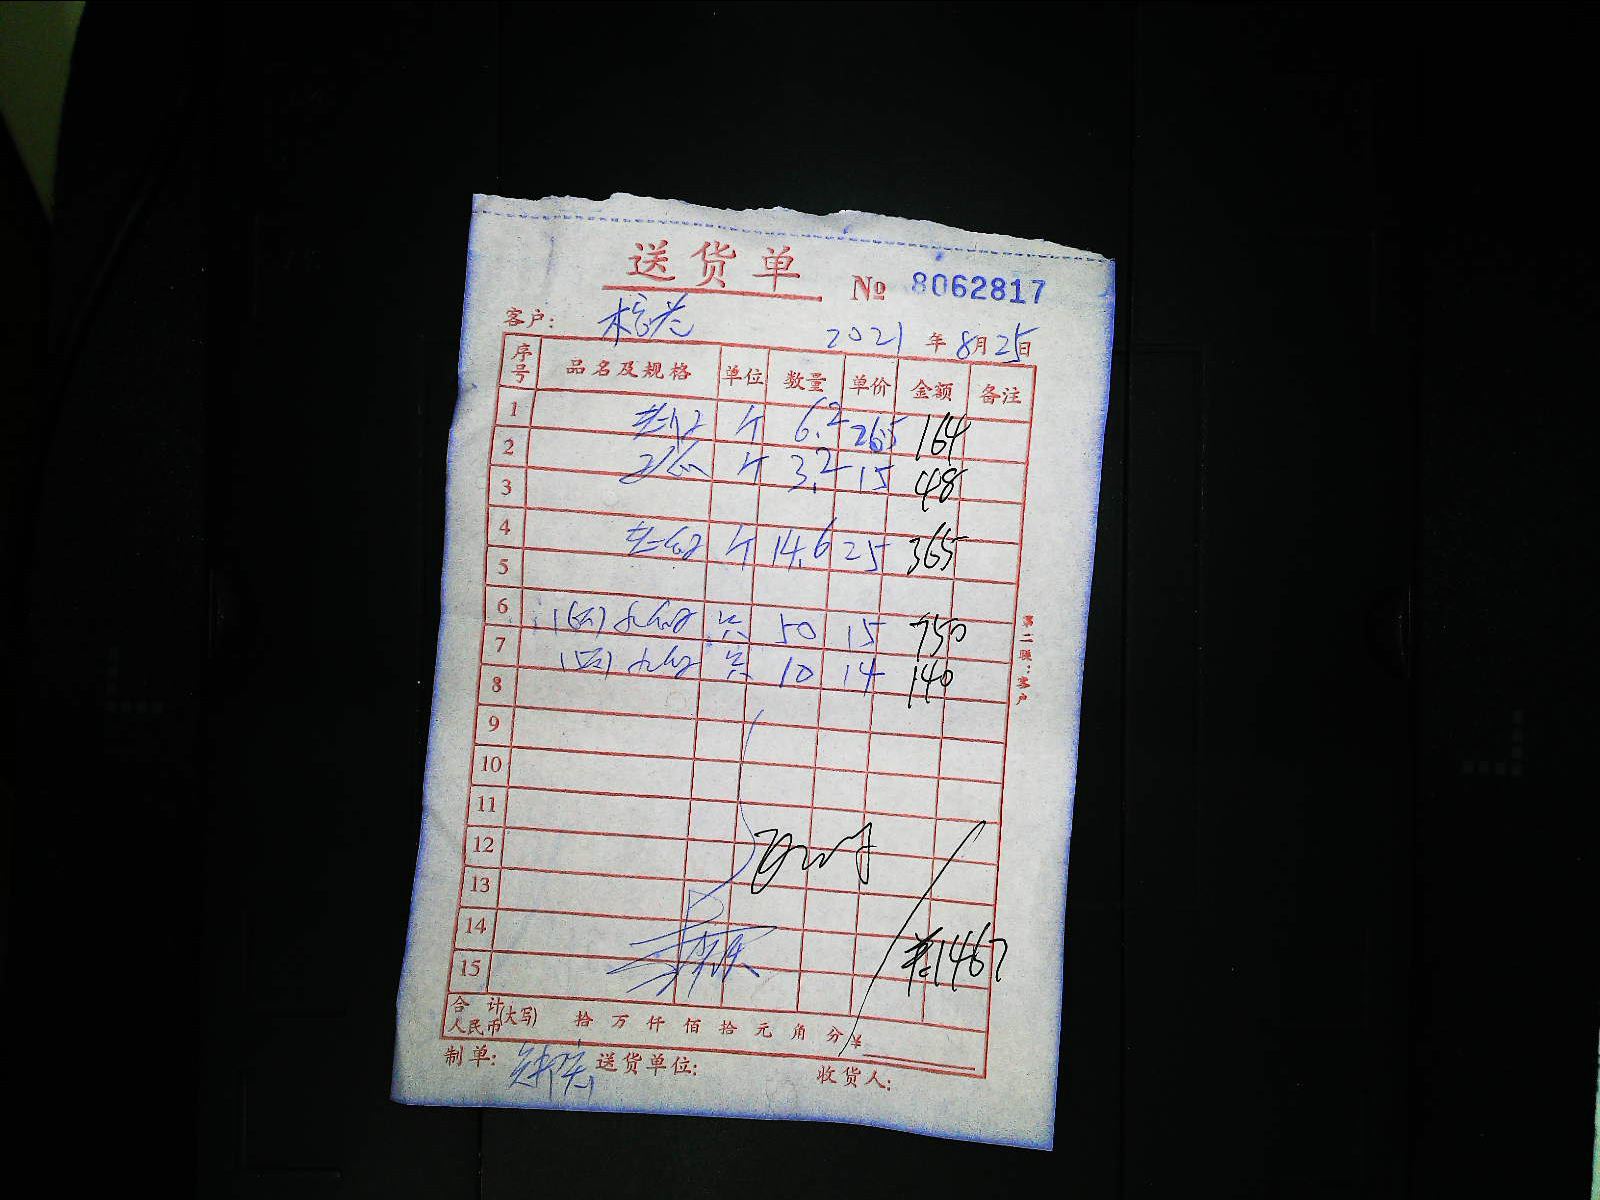 送货单 № 8062817
客户: 2021年8月25日
序号 品名及规格 单位 数量 单价 金额 备注
1 斤 6.2 26.5 164
2 斤 3.2 15 48
3
4 斤 14.6 25 365
5
6 50 15 750
7 10 14 140
8
9
10
11
12
13
14
¥:1467
15
合计人民币(大写) 拾 万 仟 佰 拾 元 角 分 ¥
制单: 送货单位: 收货人:
第二联:客户